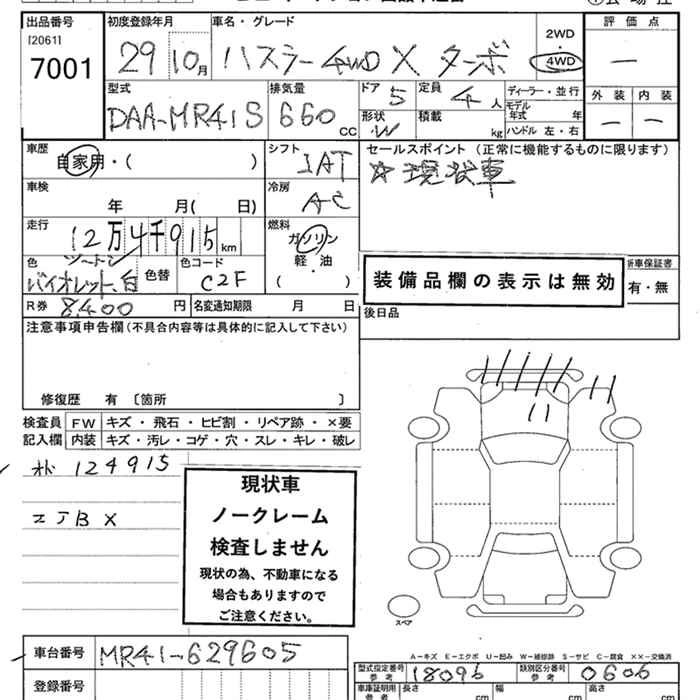 出品番号 初度登録年月 車名・グレード 2WD 評価点
[2061] 7001 29 10月 ハスラー 4WD X ターボ 4WD ―
型式 排気量 ドア 定員 ディーラー・並行 外装 内装
DAA-MR41S 660 CC 5 4人 モデル年式 年 ― ―
形状 W 積載 kg ハンドル 左・右
車歴 シフト セールスポイント (正常に機能するものに限ります)
自家用・( ) IAT ☆現状車
車検 冷房
年 月( 日) AC
走行 燃料
12万4千915km ガソリン
軽・油
( )
色 ツートン 色替 色コード
バイオレット、白 C2F
装備品欄の表示は無効 新車保証書
有・無
R券 8,400 円 名変通知期限 月 日 後日品
注意事項申告欄(不具合内容等は具体的に記入して下さい)
修復歴 有 〔箇所 〕
検査員 FW キズ・飛石・ヒビ割・リペア跡・×要
記入欄 内装 キズ・汚レ・コゲ・穴・スレ・キレ・破レ
124915
エJB X
現状車
ノークレーム
検査しません
現状の為、不動車になる
場合もありますので
ご注意ください。
スペア
A-キズ E-エクボ U-凹み W-補修跡 S-サビ C-腐食 ××-交換済
車台番号 MR41-629605
登録番号
型式指定番号 参考 18096 類別区分番号 参考 0606
車庫証明用 参考 長さ cm 幅 cm 高さ cm